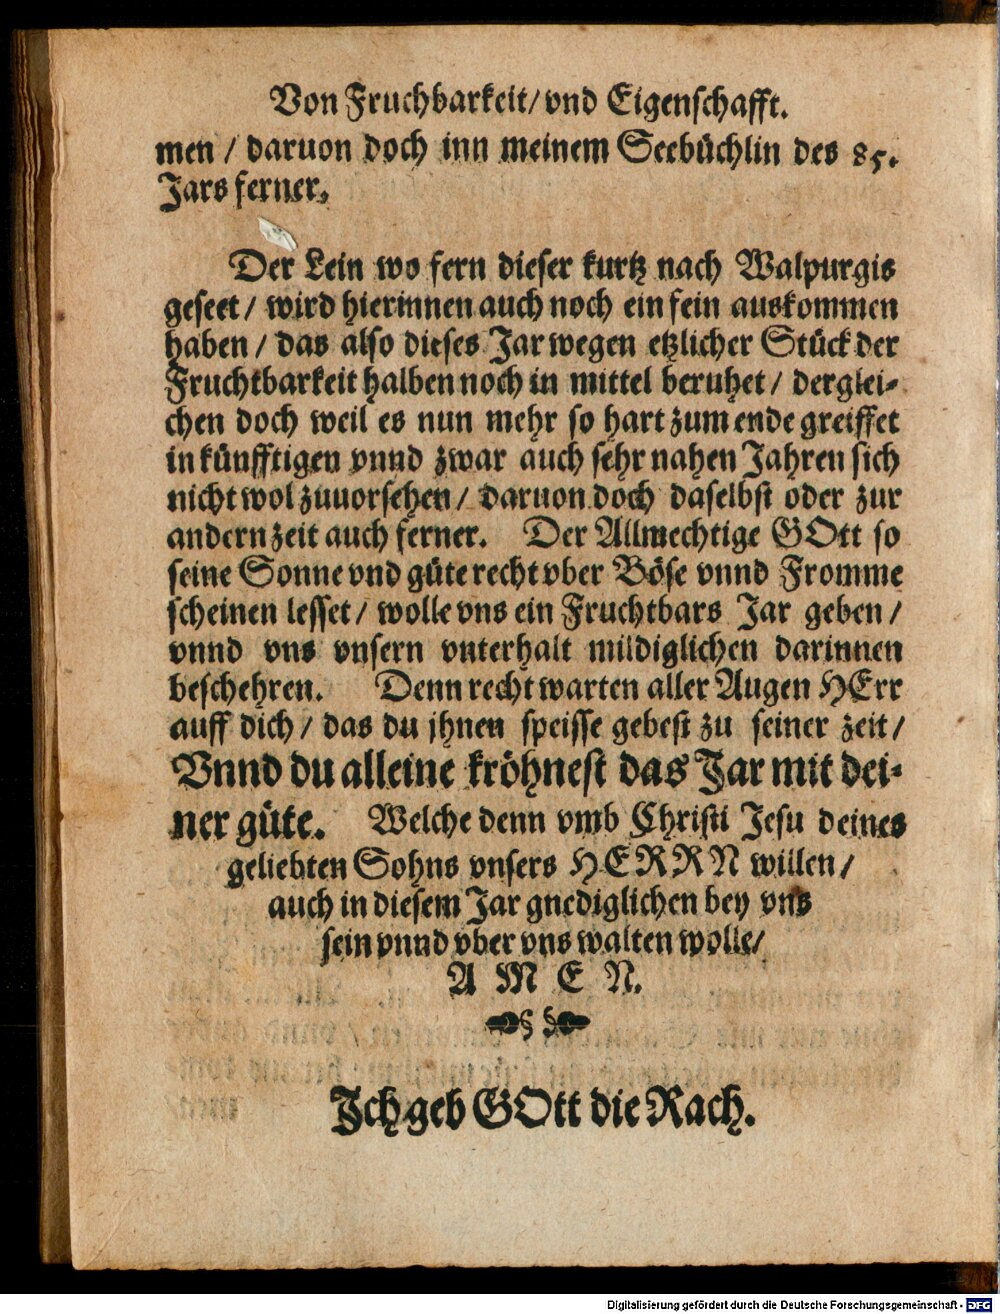 Von Fruchbarkeit/ vnd Eigenschafft.
men / daruon doch inn meinem Seebüchlin des 85.
Jars ferner.
Der Lein wo fern dieser kurtz nach Walpurgis
geseet / wird hierinnen auch noch ein fein auskommen
haben / das also dieses Jar wegen etzlicher Stück der
Fruchtbarkeit halben noch in mittel beruhet / derglei-
chen doch weil es nun mehr so hart zum ende greiffet
in künfftigen vnnd zwar auch sehr nahen Jahren sich
nicht wol zuuorsehen / daruon doch daselbst oder zur
andern zeit auch ferner. Der Allmechtige GOtt so
seine Sonne vnd güte recht vber Böse vnnd Fromme
scheinen lesset / wolle vns ein Fruchtbars Jar geben /
vnnd vns vnsern vnterhalt mildiglichen darinnen
beschehren. Denn recht warten aller Augen HErr
auff dich / das du jhnen speisse gebest zu seiner zeit /
Vnnd du alleine kröhnest das Jar mit dei-
ner güte. Welche denn vmb Christi Jesu deines
geliebten Sohns vnsers HERRN willen /
auch in diesem Jar gnediglichen bey vns
sein vnnd vber vns walten wolle/
A M E N.
Jch geb GOtt die Rach.
Digitalisierung gefördert durch die Deutsche Forschungsgemeinschaft - DFG